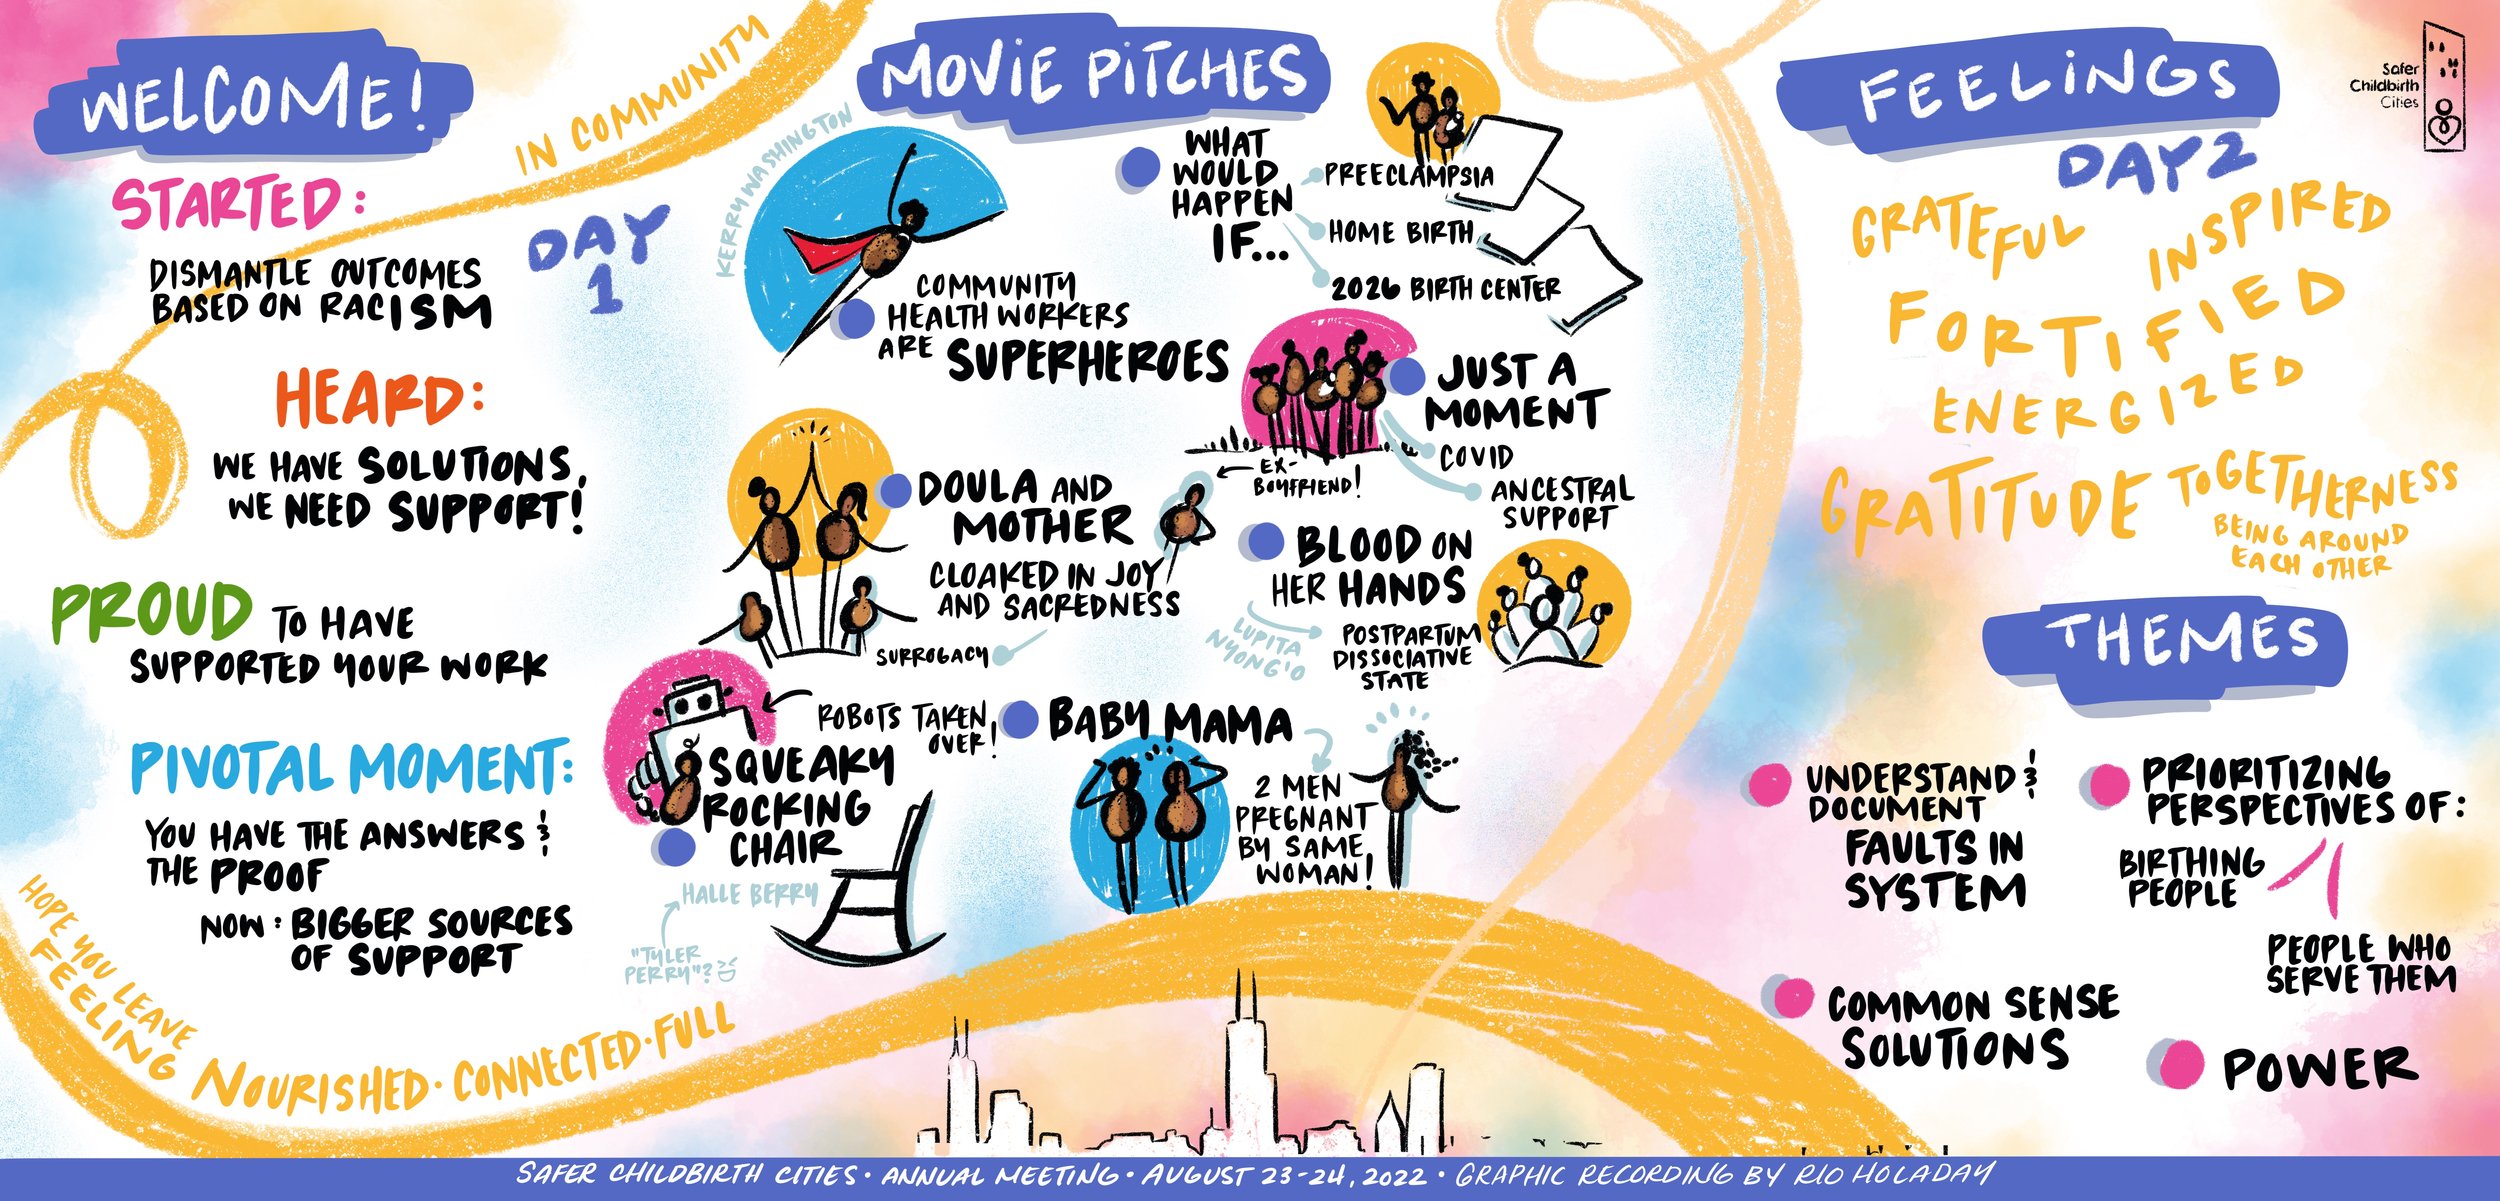 WELCOME!
STARTED:
DISMANTLE OUTCOMES
BASED ON RACISM
HEARD:
WE HAVE SOLUTIONS,
WE NEED SUPPORT!
PROUD TO HAVE
SUPPORTED YOUR WORK
PIVOTAL MOMENT:
YOU HAVE THE ANSWERS &
THE PROOF
NOW: BIGGER SOURCES
OF SUPPORT
HOPE YOU LEAVE
FEELING
NOURISHED · CONNECTED · FULL
IN COMMUNITY
DAY
1
MOVIE PITCHES
KERRY WASHINGTON
COMMUNITY
HEALTH WORKERS
ARE SUPERHEROES
WHAT
WOULD
HAPPEN
IF...
PREECLAMPSIA
HOME BIRTH
2026 BIRTH CENTER
JUST A
MOMENT
COVID
ANCESTRAL
SUPPORT
EX-
BOYFRIEND!
DOULA AND
MOTHER
CLOAKED IN JOY
AND SACREDNESS
SURROGACY
BLOOD ON
HER HANDS
LUPITA
NYONG'O
POSTPARTUM
DISSOCIATIVE
STATE
ROBOTS TAKEN
OVER!
SQUEAKY
ROCKING
CHAIR
HALLE BERRY
"TYLER
PERRY"?
BABY MAMA
2 MEN
PREGNANT
BY SAME
WOMAN!
FEELINGS
DAY 2
GRATEFUL
INSPIRED
FORTIFIED
ENERGIZED
GRATITUDE
TOGETHERNESS
BEING AROUND
EACH OTHER
THEMES
UNDERSTAND &
DOCUMENT
FAULTS IN
SYSTEM
PRIORITIZING
PERSPECTIVES OF:
BIRTHING
PEOPLE
PEOPLE WHO
SERVE THEM
COMMON SENSE
SOLUTIONS
POWER
Safer
Childbirth
Cities
SAFER CHILDBIRTH CITIES · ANNUAL MEETING · AUGUST 23-24, 2022 · GRAPHIC RECORDING BY RIO HOLADAY